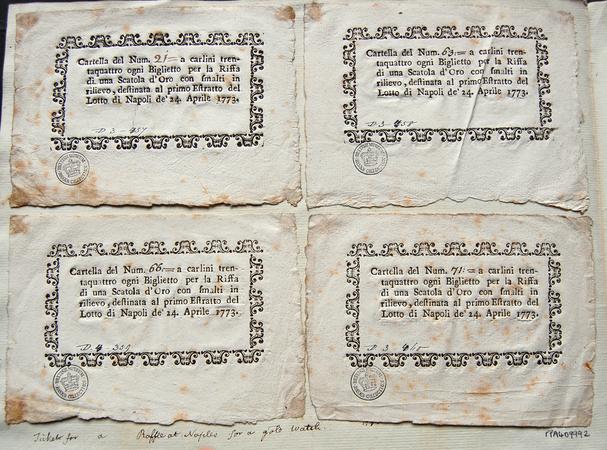 Cartella del Num. 21= a carlini tren-
taquattro ogni Biglietto per la Riffa
di una Scatola d'Oro con ſmalti in
rilievo, deſtinata al primo Eſtratto del
Lotto di Napoli de' 24. Aprile 1773.
D. 3
Cartella del Num. 63:= a carlini tren-
taquattro ogni Biglietto per la Riffa
di una Scatola d'Oro con ſmalti in
rilievo, deſtinata al primo Eſtratto del
Lotto di Napoli de' 24. Aprile 1773.
D. 3
Cartella del Num. 66:= a carlini tren-
taquattro ogni Biglietto per la Riffa
di una Scatola d'Oro con ſmalti in
rilievo, deſtinata al primo Eſtratto del
Lotto di Napoli de' 24. Aprile 1773.
Cartella del Num. 71:= a carlini tren-
taquattro ogni Biglietto per la Riffa
di una Scatola d'Oro con ſmalti in
rilievo, deſtinata al primo Eſtratto del
Lotto di Napoli de' 24. Aprile 1773.
D. 3
Tickets for a Raffle at Naples for a gold watch.